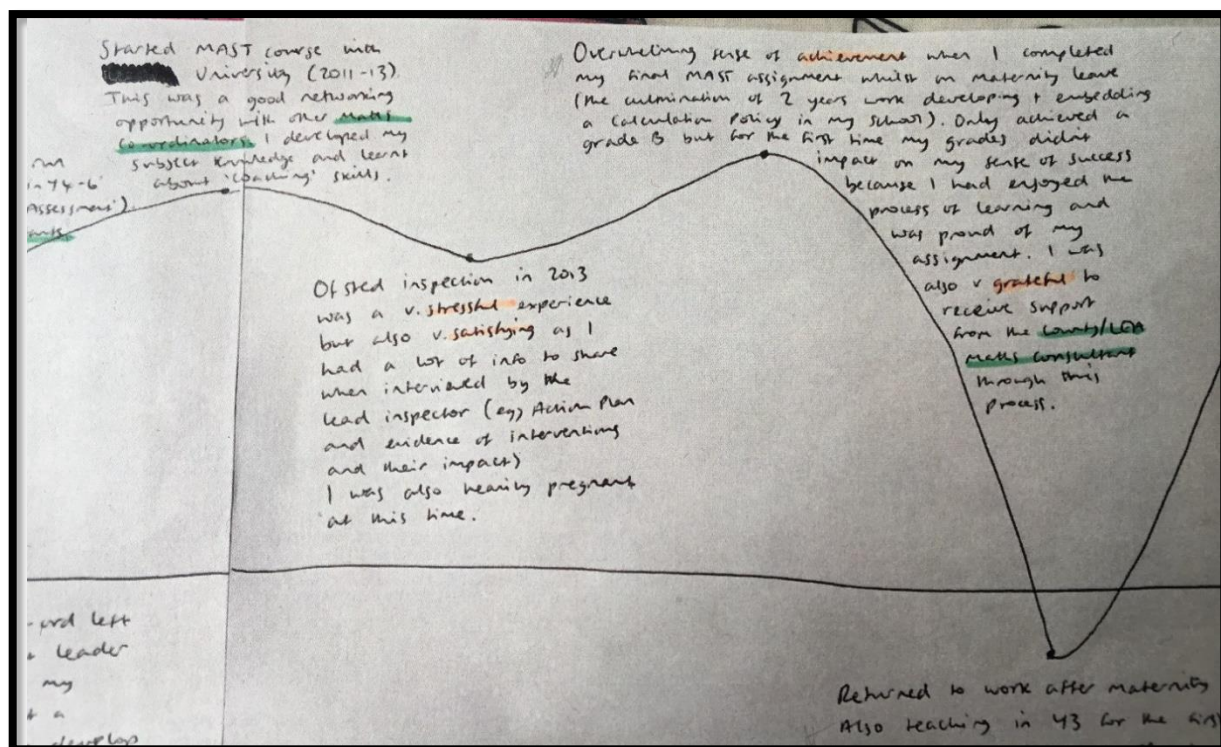 Started MAST course with
University (2011-13).
This was a good networking
opportunity with other Maths
Co-ordinators. I developed my
subject knowledge and learnt
about 'coaching' skills.
in Y4-6'
Assessment').
Overwhelming sense of achievement when I completed
my final MAST assignment whilst on maternity leave
(the culmination of 2 years work developing + embedding
a Calculation Policy in my school). Only achieved a
grade B but for the first time my grades didn't
impact on my sense of success
because I had enjoyed the
process of learning and
was proud of my
assignment. I was
also v grateful to
receive support
from the County/LEA
Maths Consultant
through this
process.
Ofsted inspection in 2013
was a v. stressful experience
but also v. satisfying as I
had a lot of info to share
when interviewed by the
lead inspector (eg) Action Plan
and evidence of interventions
and their impact)
I was also heavily pregnant
at this time.
left
leader
my
a
develop
Returned to work after maternity
Also teaching in Y3 for the first